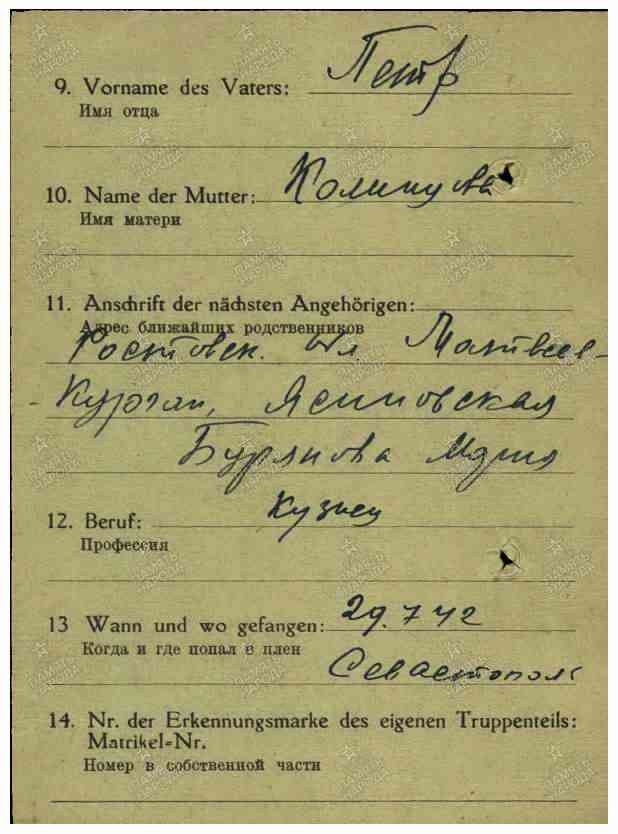 9. Vorname des Vaters: Петр
Имя отца
10. Name der Mutter:
Имя матери
11. Anschrift der nächsten Angehörigen:
Адрес ближайших родственников
Ростовск. Матвеев-
-Курган, Ясиновская
Бурянова Мария
12. Beruf: Кузнец
Профессия
13 Wann und wo gefangen: 29.7 42
Когда и где попал в плен
Севастополь
14. Nr. der Erkennungsmarke des eigenen Truppenteils:
Matrikel=Nr.
Номер в собственной части